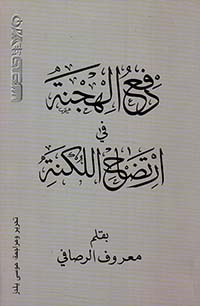 دفع الهجنة
في
ارتضاخ اللكنة
بقلم
معروف الرصافي
تحرير ومراجعة موسى يلدز